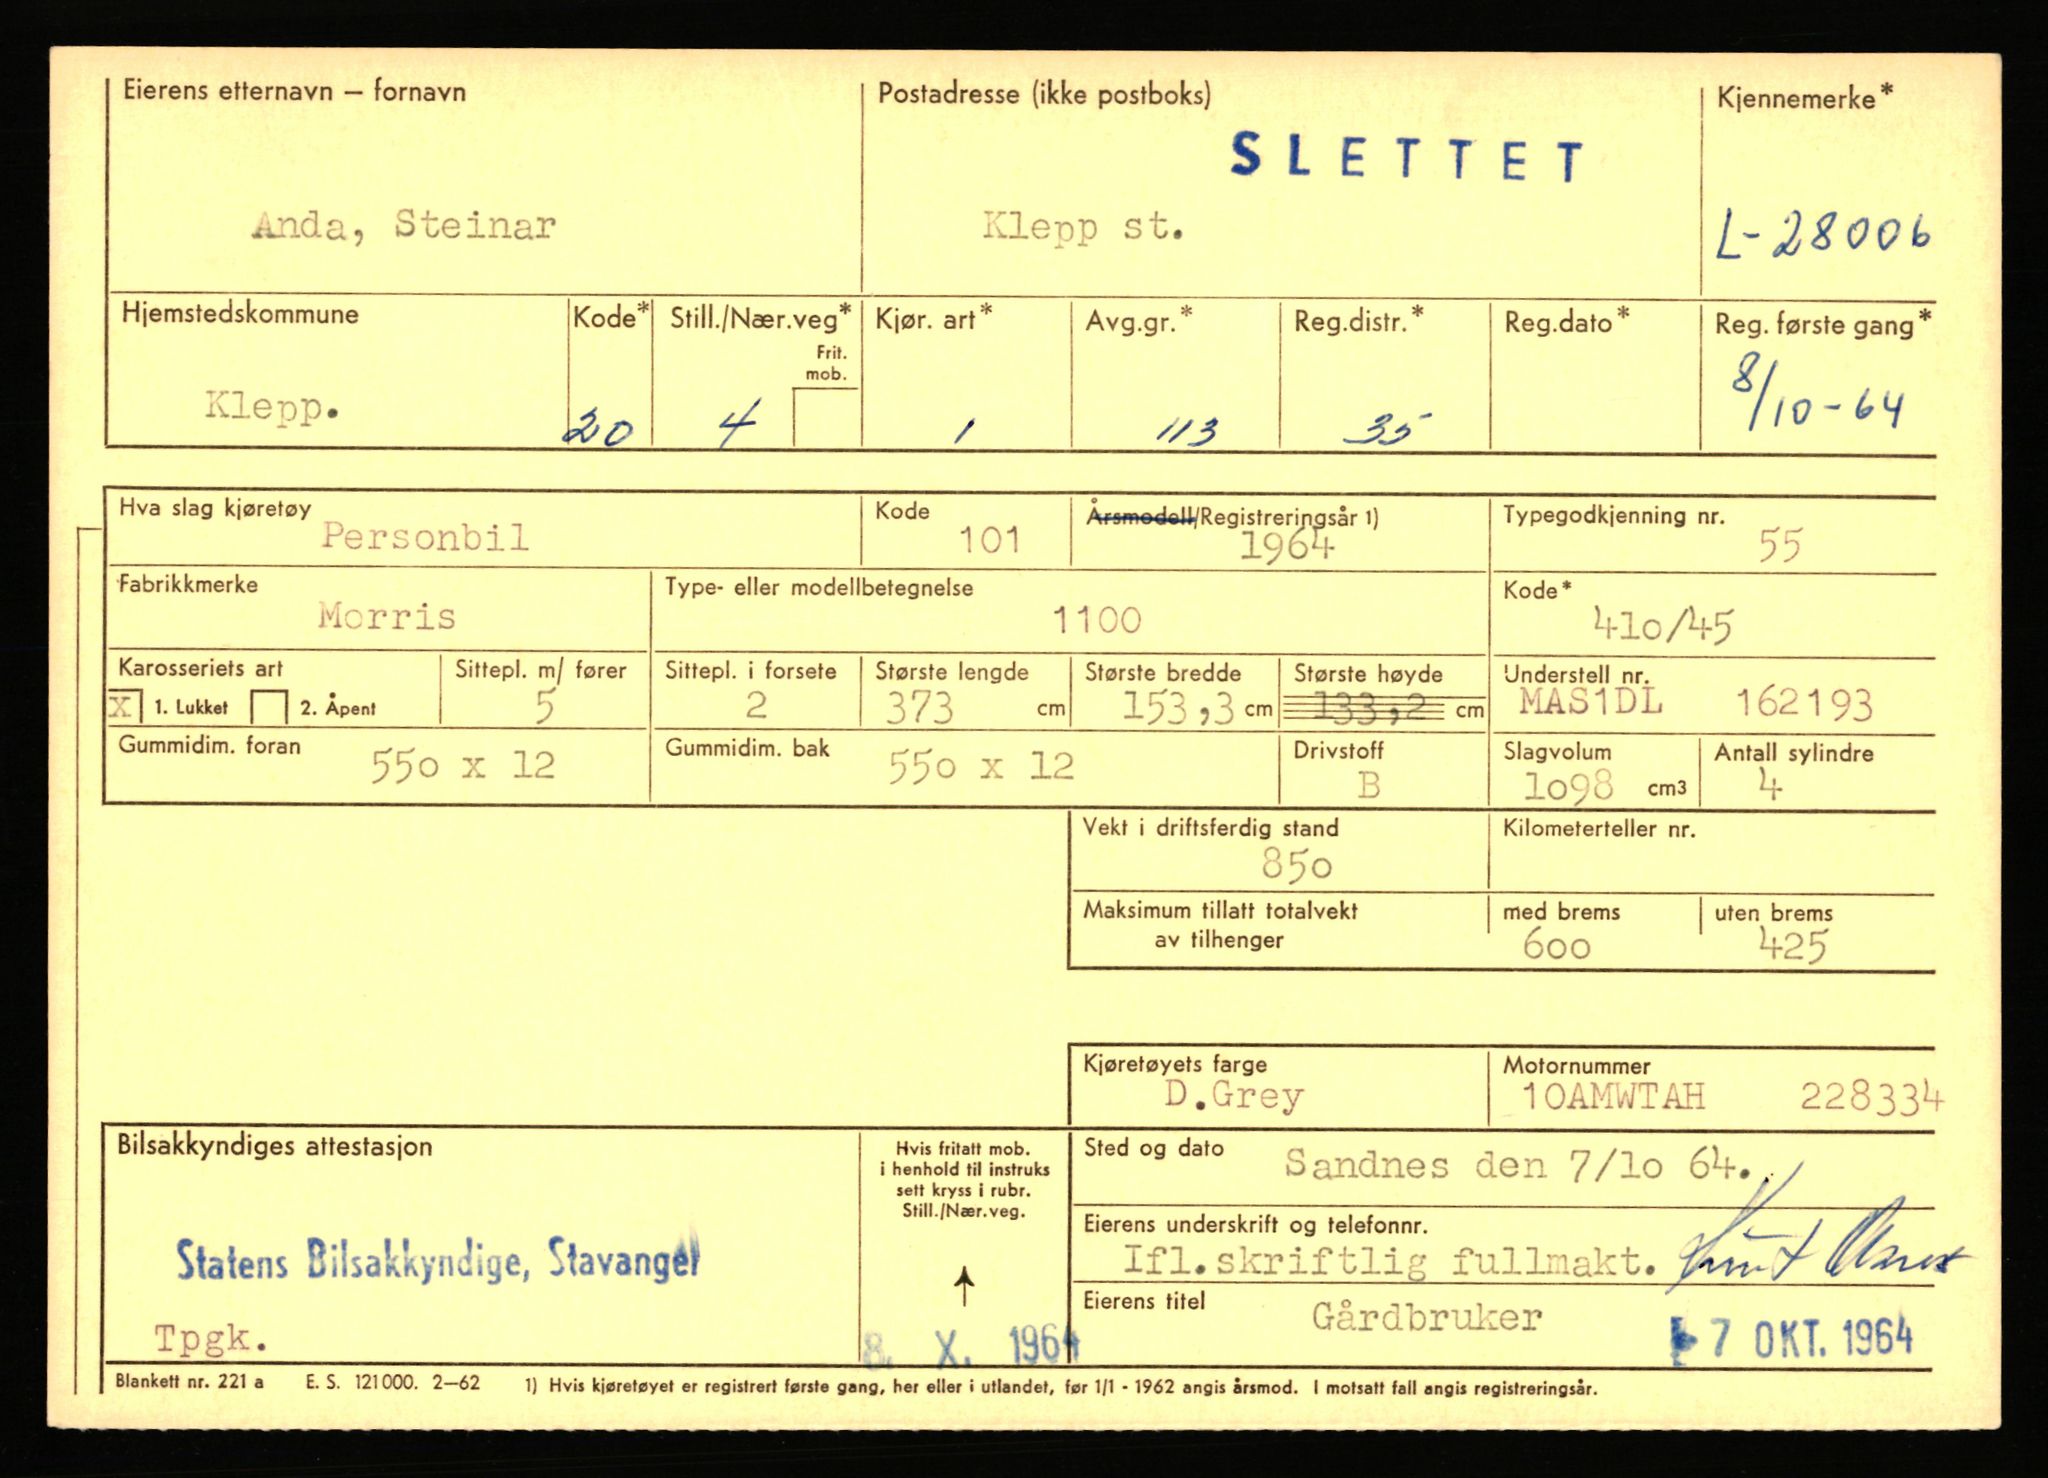 Eierens etternavn – fornavn
Postadresse (ikke postboks)
Kjennemerke*
SLETTET
Anda, Steinar
Klepp st.
L-28006
Hjemstedskommune
Kode*
Still./Nær.veg*
Frit. mob.
Kjør. art*
Avg.gr.*
Reg.distr.*
Reg.dato*
Reg. første gang*
Klepp.
20
4
1
113
35
8/10-64
Hva slag kjøretøy
Personbil
Kode
101
Årsmodell/Registreringsår 1)
1964
Typegodkjenning nr.
55
Fabrikkmerke
Morris
Type- eller modellbetegnelse
1100
Kode*
41o/45
Karosseriets art
X 1. Lukket 2. Åpent
Sittepl. m/ fører
5
Sittepl. i forsete
2
Største lengde
373 cm
Største bredde
153,3 cm
Største høyde
133,2 cm
Understell nr.
MAS1DL 162193
Gummidim. foran
55o x 12
Gummidim. bak
55o x 12
Drivstoff
B
Slagvolum
1o98 cm3
Antall sylindre
4
Vekt i driftsferdig stand
85o
Kilometerteller nr.
Maksimum tillatt totalvekt
av tilhenger
med brems
6oo
uten brems
425
Kjøretøyets farge
D.Grey
Motornummer
10AMWTAH 228334
Bilsakkyndiges attestasjon
Statens Bilsakkyndige, Stavanger
Tpgk.
Hvis fritatt mob.
i henhold til instruks
sett kryss i rubr.
Still./Nær.veg.
8. X. 1964
Sted og dato
Sandnes den 7/1o 64.
Eierens underskrift og telefonnr.
Ifl.skriftlig fullmakt.
Eierens titel
Gårdbruker
7 OKT. 1964
Blankett nr. 221 a E. S. 121000. 2—62 1) Hvis kjøretøyet er registrert første gang, her eller i utlandet, før 1/1 - 1962 angis årsmod. I motsatt fall angis registreringsår.